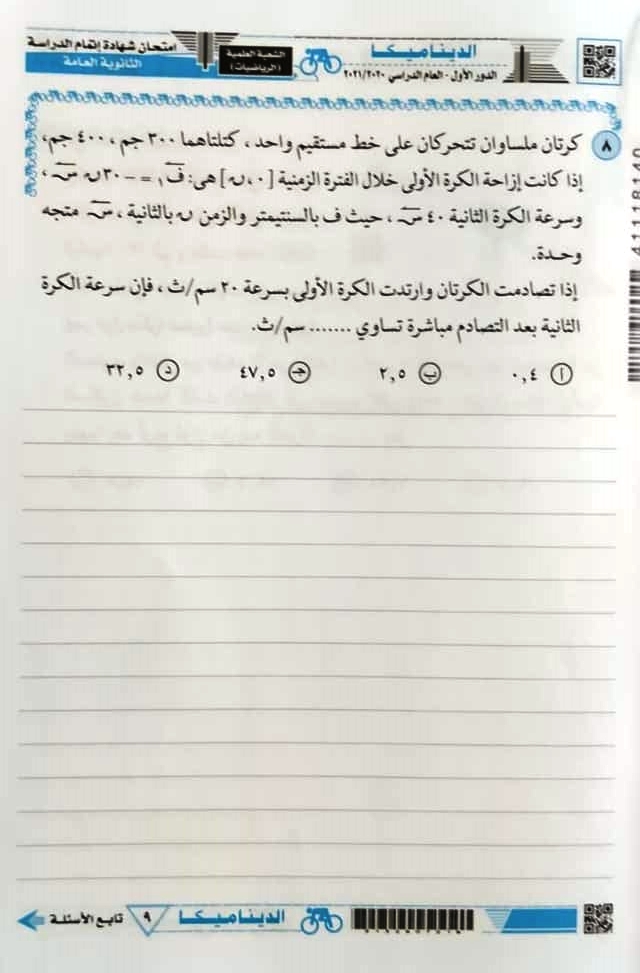 امتحان شهادة إتمام الدراسة
الثانوية العامة
الشعبة العلمية
(الرياضيات)
الديناميكا
الدور الأول - العام الدراسي ٢٠٢١/٢٠٢٠
٨
كرتان ملساوان تتحركان على خط مستقيم واحد ، كتلتاهما ٣٠٠ جم ، ٤٠٠ جم،
إذا كانت إزاحة الكرة الأولى خلال الفترة الزمنية [٠ ، ن] هى: ف١ = - ٣٠ ن س ،
وسرعة الكرة الثانية ٤٠ س ، حيث ف بالسنتيمتر والزمن ن بالثانية ، س متجه
وحدة.
إذا تصادمت الكرتان وارتدت الكرة الأولى بسرعة ٢٠ سم/ث ، فإن سرعة الكرة
الثانية بعد التصادم مباشرة تساوي ....... سم/ث.
أ ٠,٤ ب ٢,٥ جـ ٤٧,٥ د ٣٢,٥
41118140
الديناميكا ٩ تابع الأسئلة